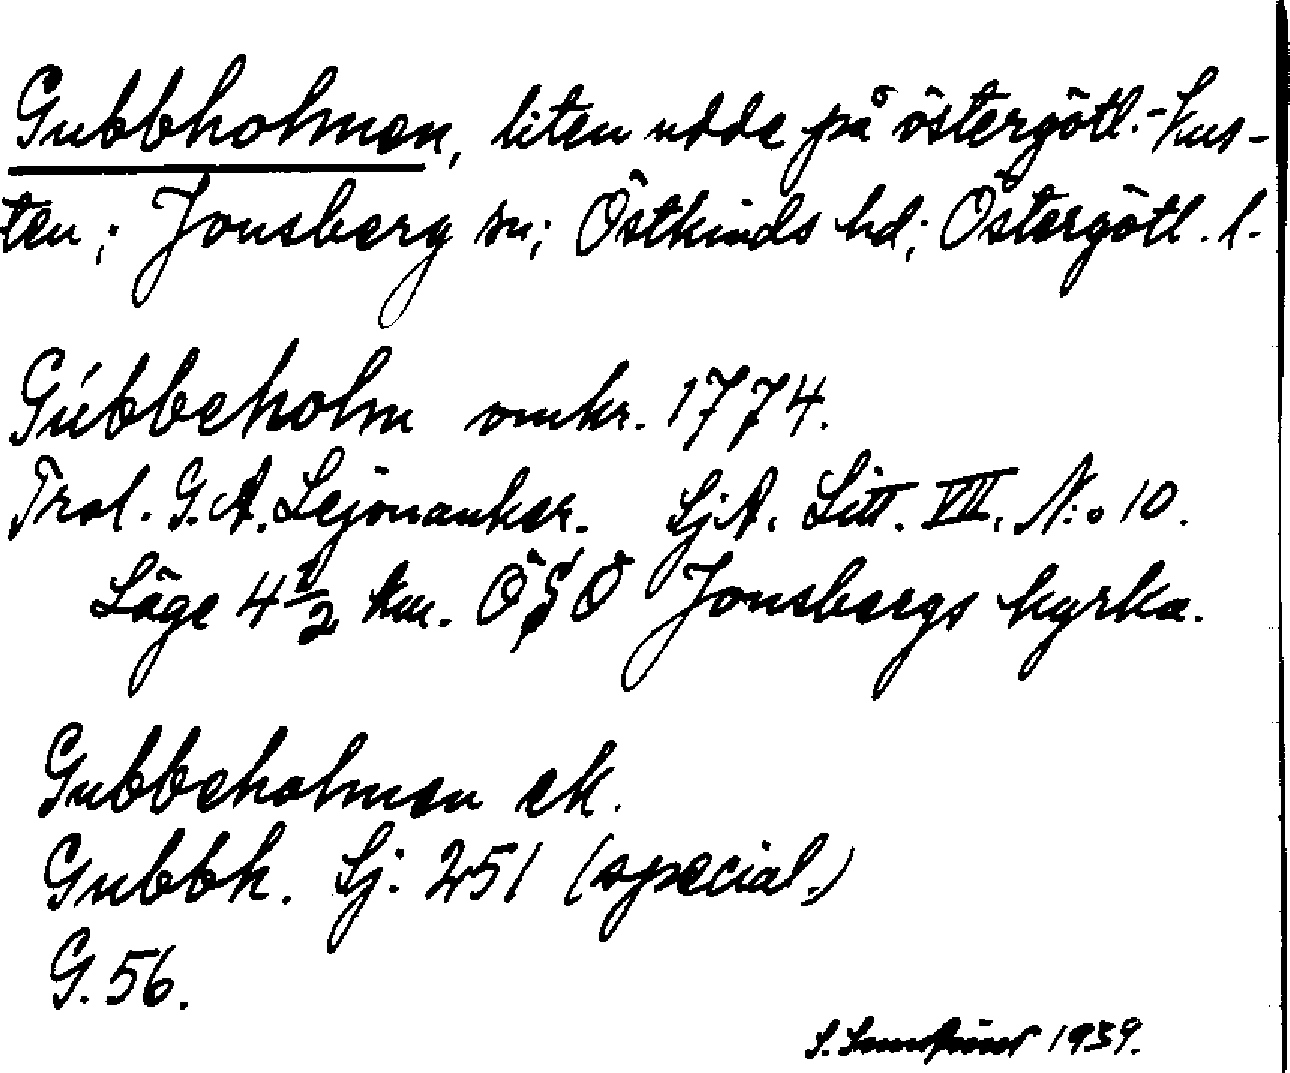 Gubbholmen, liten udde på östergötl.-kus-
ten; Jonsberg sn; Östkinds hd; Östergötl. l.
Gúbbeholm omkr. 1774.
Trol. G. A. Lejonanker. SjA. Litt. VIII. N:o 10.
Läge 4 1/2 km. ÖSÖ Jonsbergs kyrka.
Gubbeholmen ek.
Gubbh. Sj. 251 (special.)
G. 56.
S. 1939.